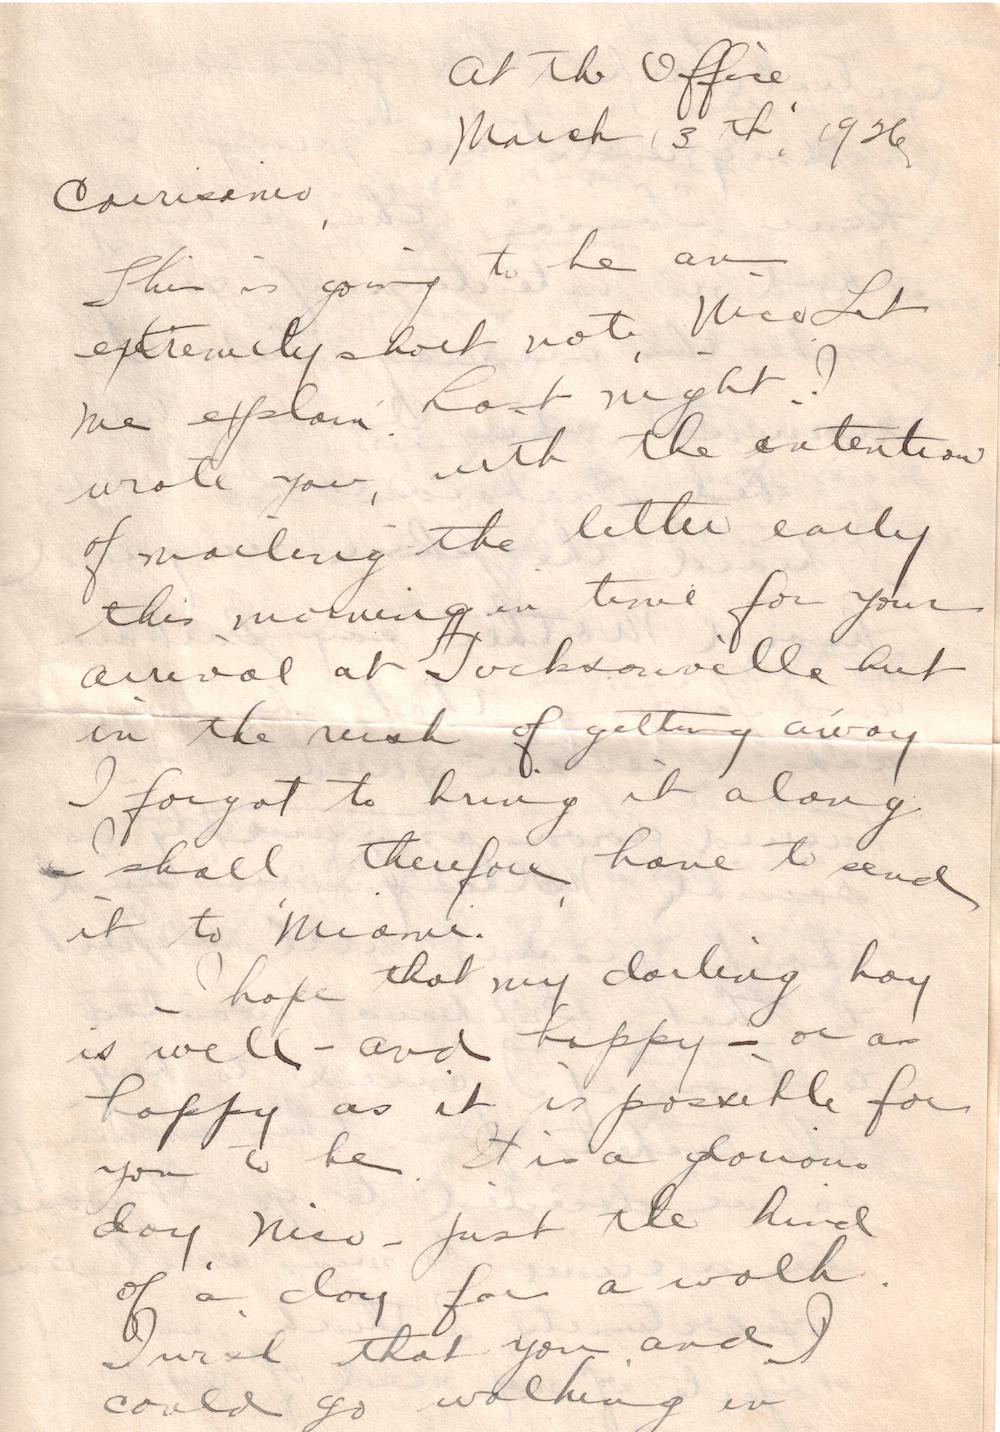 At the Office
March 13th, 1926,
Carrisimo,
This is going to be an
extremely short note, Nico Let
me explain. Last night I
wrote you, with the intention
of mailing the letter early
this morning in time for your
arrival at Jacksonville but
in the rush of getting away
I forgot to bring it along
I shall therefore, have to send
it to Miami.
I hope that my darling boy
is well - and happy - or as
happy as it is possible for
you to be. It is a glorious
day Nico - just the kind
of a day for a walk.
I wish that you and I
could go walking in